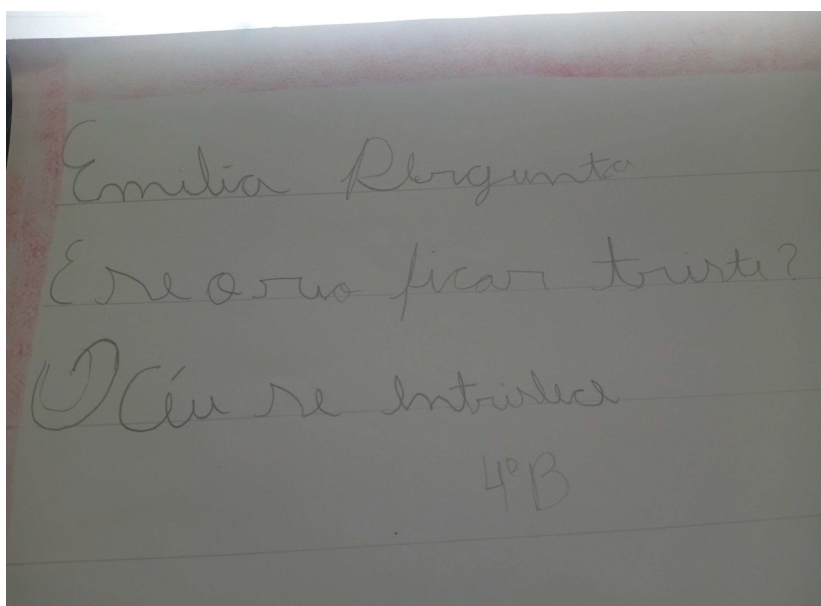 Emilia Pergunta
E se o rio ficar triste?
O Céu se entristece
4º B